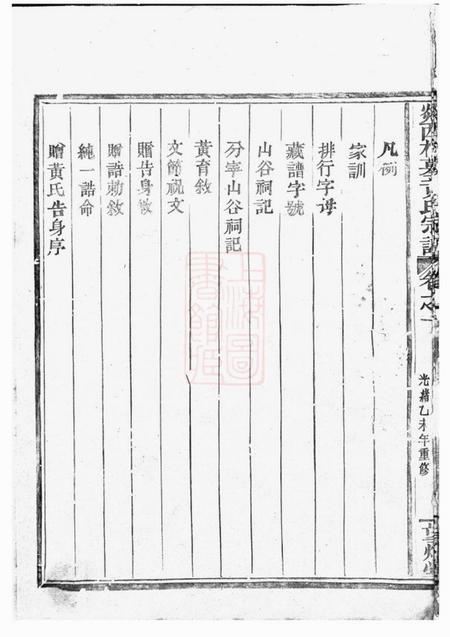 氏宗譜
卷之
光緒乙未年重修
凡例
家訓
排行字母
藏譜字號
山谷祠記
分宰山谷祠記
黃育敘
文節祝文
贈告身敘
贈誥勅敘
純一誥命
贈黃氏告身序
上海圖書館藏